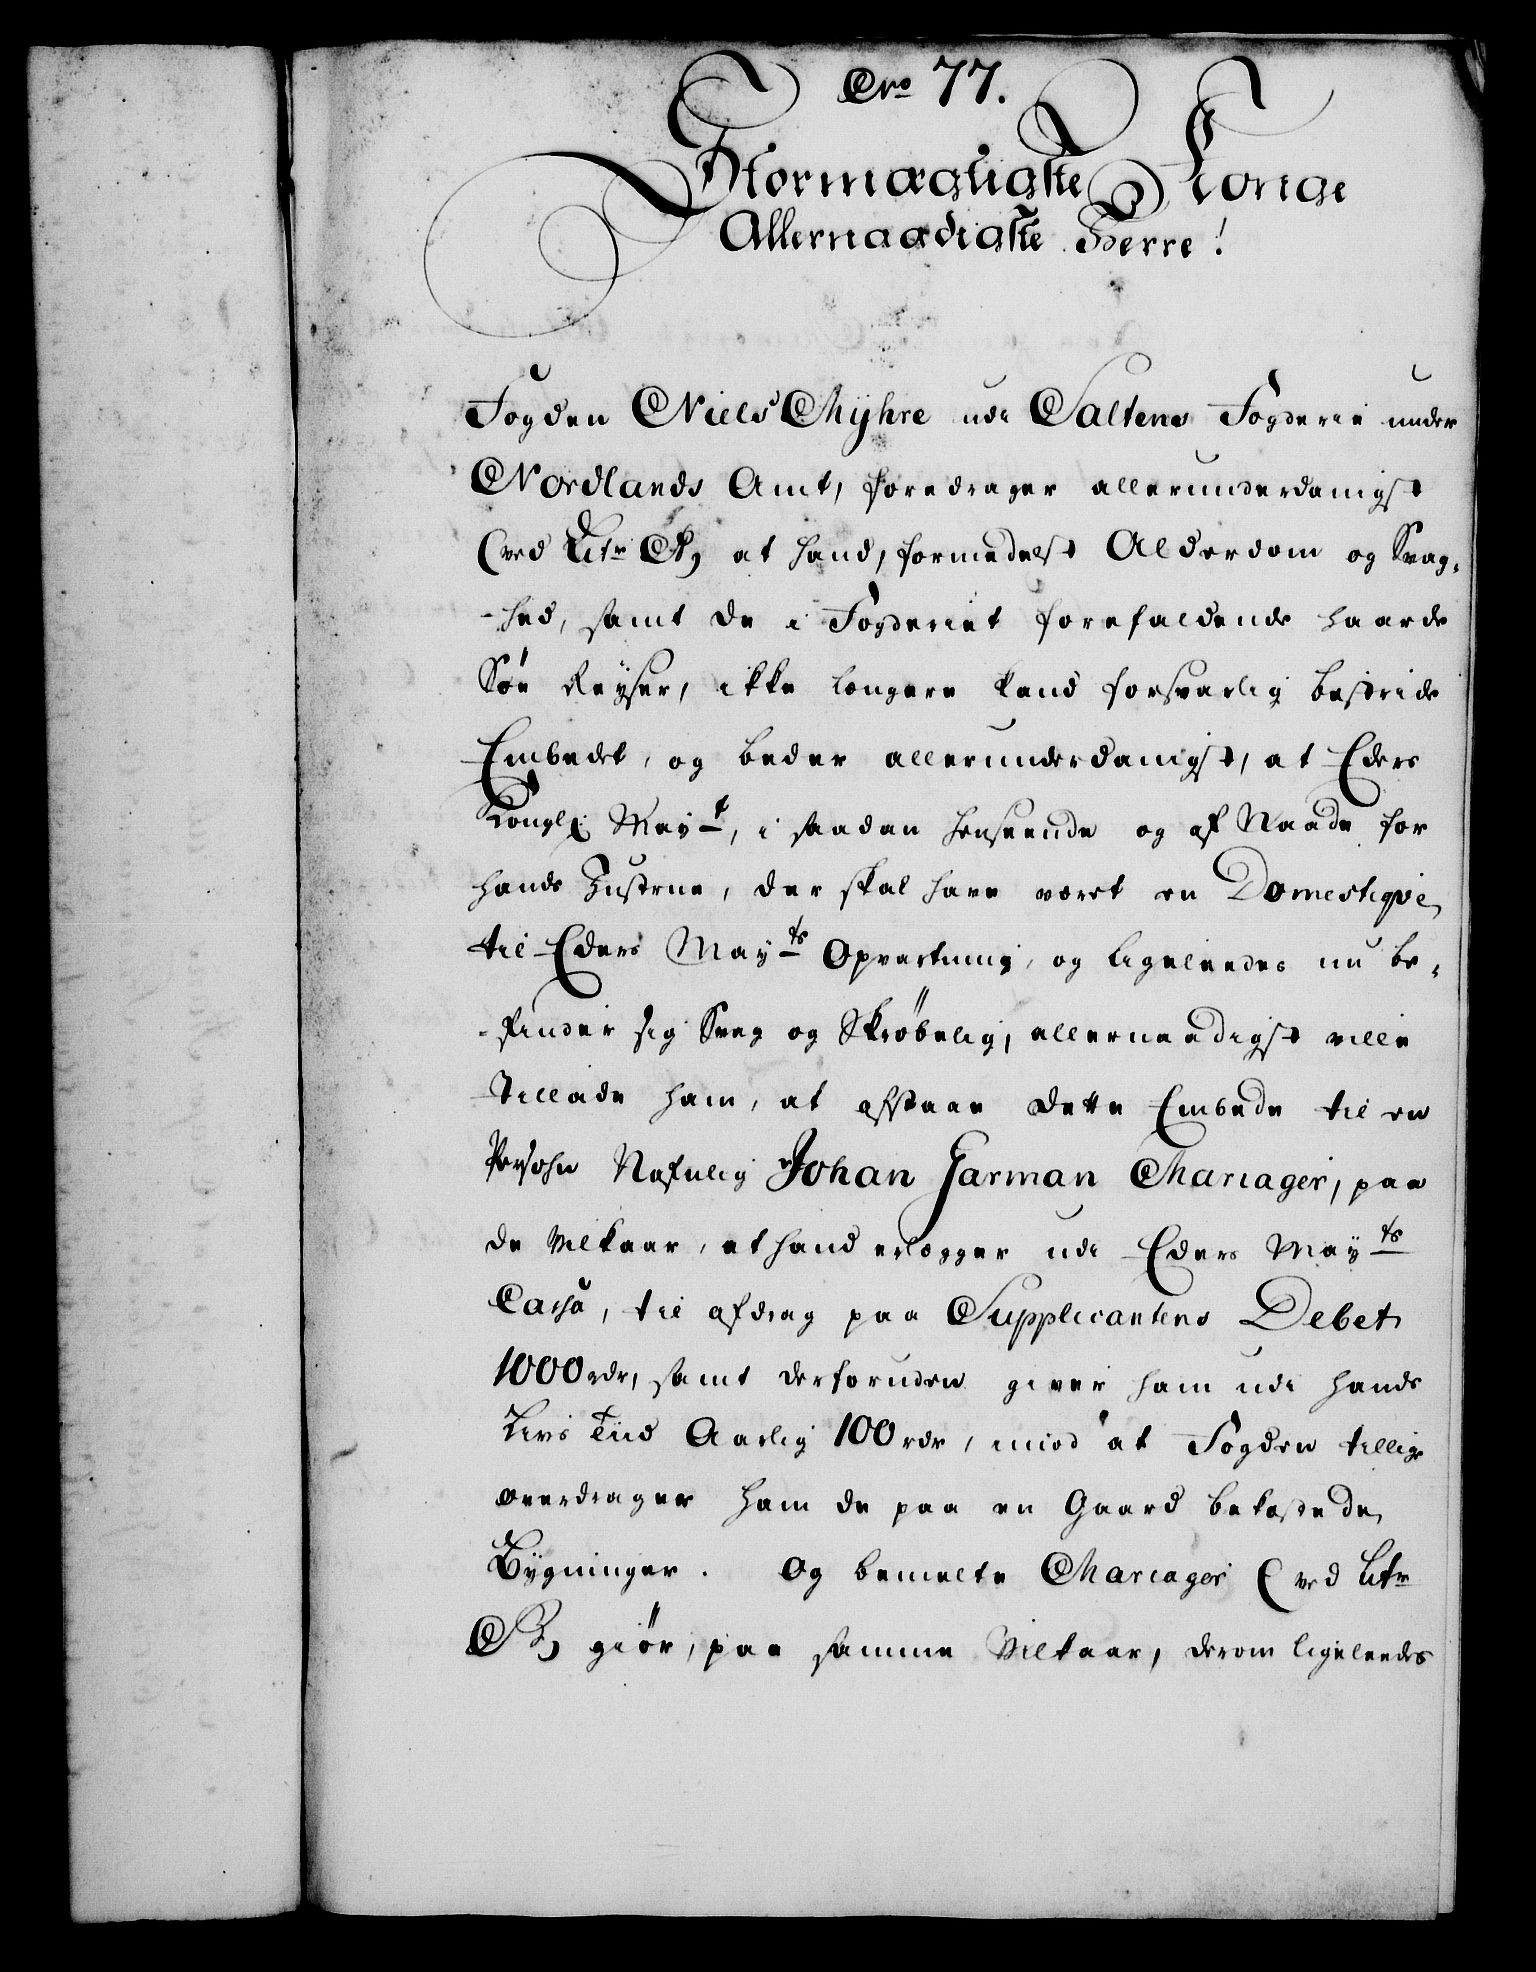 Nro 77.
Stormægtigste Konge
Allernaadigste Herre!
Fogden Niels Myhre udi Saltens Fogderie under
Nordlands Amt, foredrager allerunderdanigst
(ved Litr A) at hand, formedelst Alderdom og Svag-
-hed, samt de i Fogderiet forefaldende haarde
Søe Reyser, ikke længere kand forsvarlig bestride
Embedet, og beder allerunderdanigst, at Eders
Kongl. May.t, i saadan henseende og af Naade for
hands Hustrue, der skal have været en Domestiqve
til Eders May.ts Opvartning, og ligeleedes nu be-
-finder sig Svag og Skrøbelig, allernaadigst ville
Tillade ham, at afstaae dette Embede til en
Persohn Nafnlig Johan Garman Mariager, paa
de Vilkaar, at hand erlægger udi Eders May.ts
Cassa, til afdrag paa Supplicantens Debet
1000 rdr, samt derforuden giver ham udi hands
Livs Tiid Aarlig 100 rdr, imod at Fogden tillige
overdrager ham de paa en Gaard bekostede
Bygninger. Og bemelte Mariager (ved Litr
B) giør, paa samme Vilkaar, derom ligeleedes